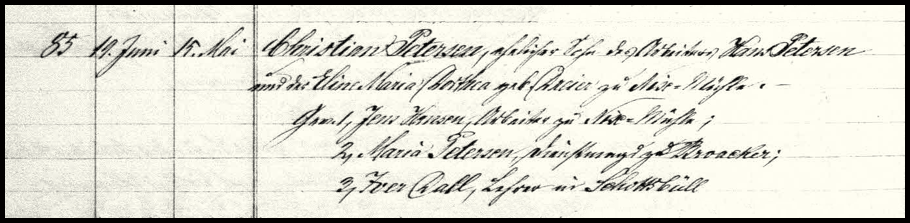 85 19. Juni 15. Mai Christian Petersen, ehelicher Sohn des Arbeiters Hans Petersen
und der Eline Maria Dorthea geb. Dreier zu Nixe-Mühle. -
Gev. 1, Jens Hansen, Arbeiter zu Nixe-Mühle;
2, Maria Petersen, Dienstmagd zu Broacker;
3, Iver Dall, Lehrer in Schottsbüll